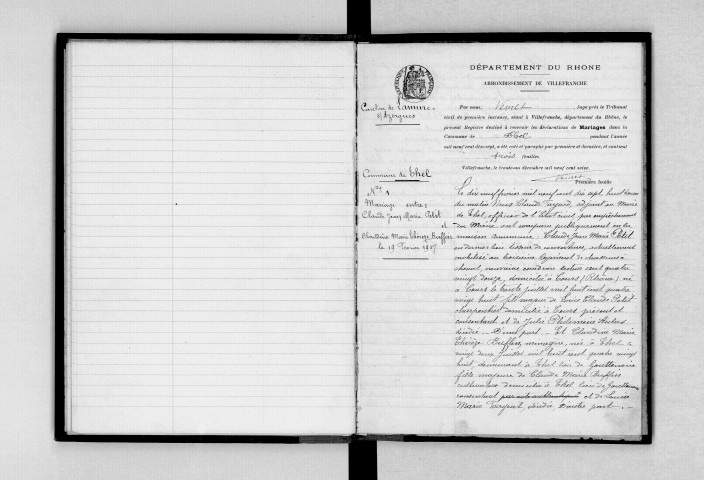 DÉPARTEMENT DU RHONE
ARRONDISSEMENT DE VILLEFRANCHE
Canton de Lamure
s/ Azergues
Par nous Juge près le Tribunal
civil de première instance, séant à Villefranche, département du Rhône, le
présent Registre destiné à recevoir les déclarations de Mariages dans la
Commune de Thel pendant l'année
mil neuf cent dix-sept, a été coté et paraphé par première et dernière, et contient
trois feuilles
Villefranche, le trente-un décembre mil neuf cent seize.
Première feuille
Commune de Thel
N° 1
Mariage entre
Claude Jean Marie Petit
et
Claudine Marie Thérèze Buffin
le 19 Février 1917
Le dix neuf février mil neuf cent dix sept, huit heures
du matin Devant Claude adjoint au Maire
de Thel, officier de l'Etat civil par empêchement
du Maire ont comparu publiquement en la
maison commune, Claude Jean Marie Petit
actuellement
mobilisé au Régiment de chasseurs à
cheval, cent quatre
vingt douze, domicilié à Cours (Rhône) né
à Cours le trente juillet mil huit cent quatre
vingt huit, fils majeur de Louis Claude Petit
charpentier domicilié à Cours présent et
consentant et de Julie Philomène
décédée D'une part Et Claudine Marie
Thérèze Buffin, ménagère, née à Thel le
vingt deux juillet mil huit cent quatre vingt
huit, demeurant à Thel lieu de
fille majeure de Claude Marie Buffin
cultivateur domicilié à Thel lieu de
consentant et de Louise
Marie décédée D'autre part.